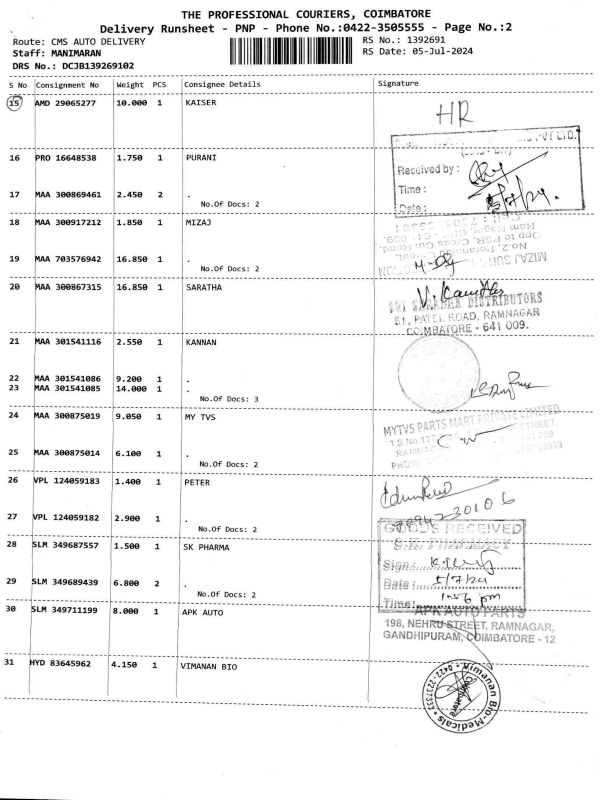 THE PROFESSIONAL COURIERS, COIMBATORE
Delivery Runsheet - PNP - Phone No.:0422-3505555 - Page No.:2
Route: CMS AUTO DELIVERY
RS No.: 1392691
Staff: MANIMARAN
RS Date: 05-Jul-2024
DRS No.: DCJB139269102
S No Consignment No Weight PCS Consignee Details Signature
15 AMD 29065277 10.000 1 KAISER
HR
PVT LTD.
16 PRO 16648538 1.750 1 PURANI
Received by :
Time :
17 MAA 300869461 2.450 2 .
Date : 5/7/24.
No.Of Docs: 2
18 MAA 300917212 1.850 1 MIZAJ
19 MAA 703576942 16.850 1 .
MIZAJ SUITS
No.Of Docs: 2
20 MAA 300867315 16.850 1 SARATHA
DISTRIBUTORS
51, PATEL ROAD, RAMNAGAR
COIMBATORE - 641 009.
21 MAA 301541116 2.550 1 KANNAN
22 MAA 301541086 9.200 1 .
23 MAA 301541085 14.000 1 .
No.Of Docs: 3
24 MAA 300875019 9.050 1 MY TVS
MYTVS PARTS MART PRIVATE LIMITED
STREET,
25 MAA 300875014 6.100 1 .
PHONE
No.Of Docs: 2
26 VPL 124059183 1.400 1 PETER
27 VPL 124059182 2.900 1 .
No.Of Docs: 2
GOODS RECEIVED
28 SLM 349687557 1.500 1 SK PHARMA
S.K. PHARMACY
Sign:
29 SLM 349689439 6.800 2 .
Date : 5/7/24
No.Of Docs: 2
Time: 1-56 pm
30 SLM 349711199 8.000 1 APK AUTO
APK AUTO PARTS
198, NEHRU STREET, RAMNAGAR,
GANDHIPURAM, COIMBATORE - 12
31 HYD 83645962 4.150 1 VIMANAN BIO
Vimanan Bio-Medicals
0422-2237333